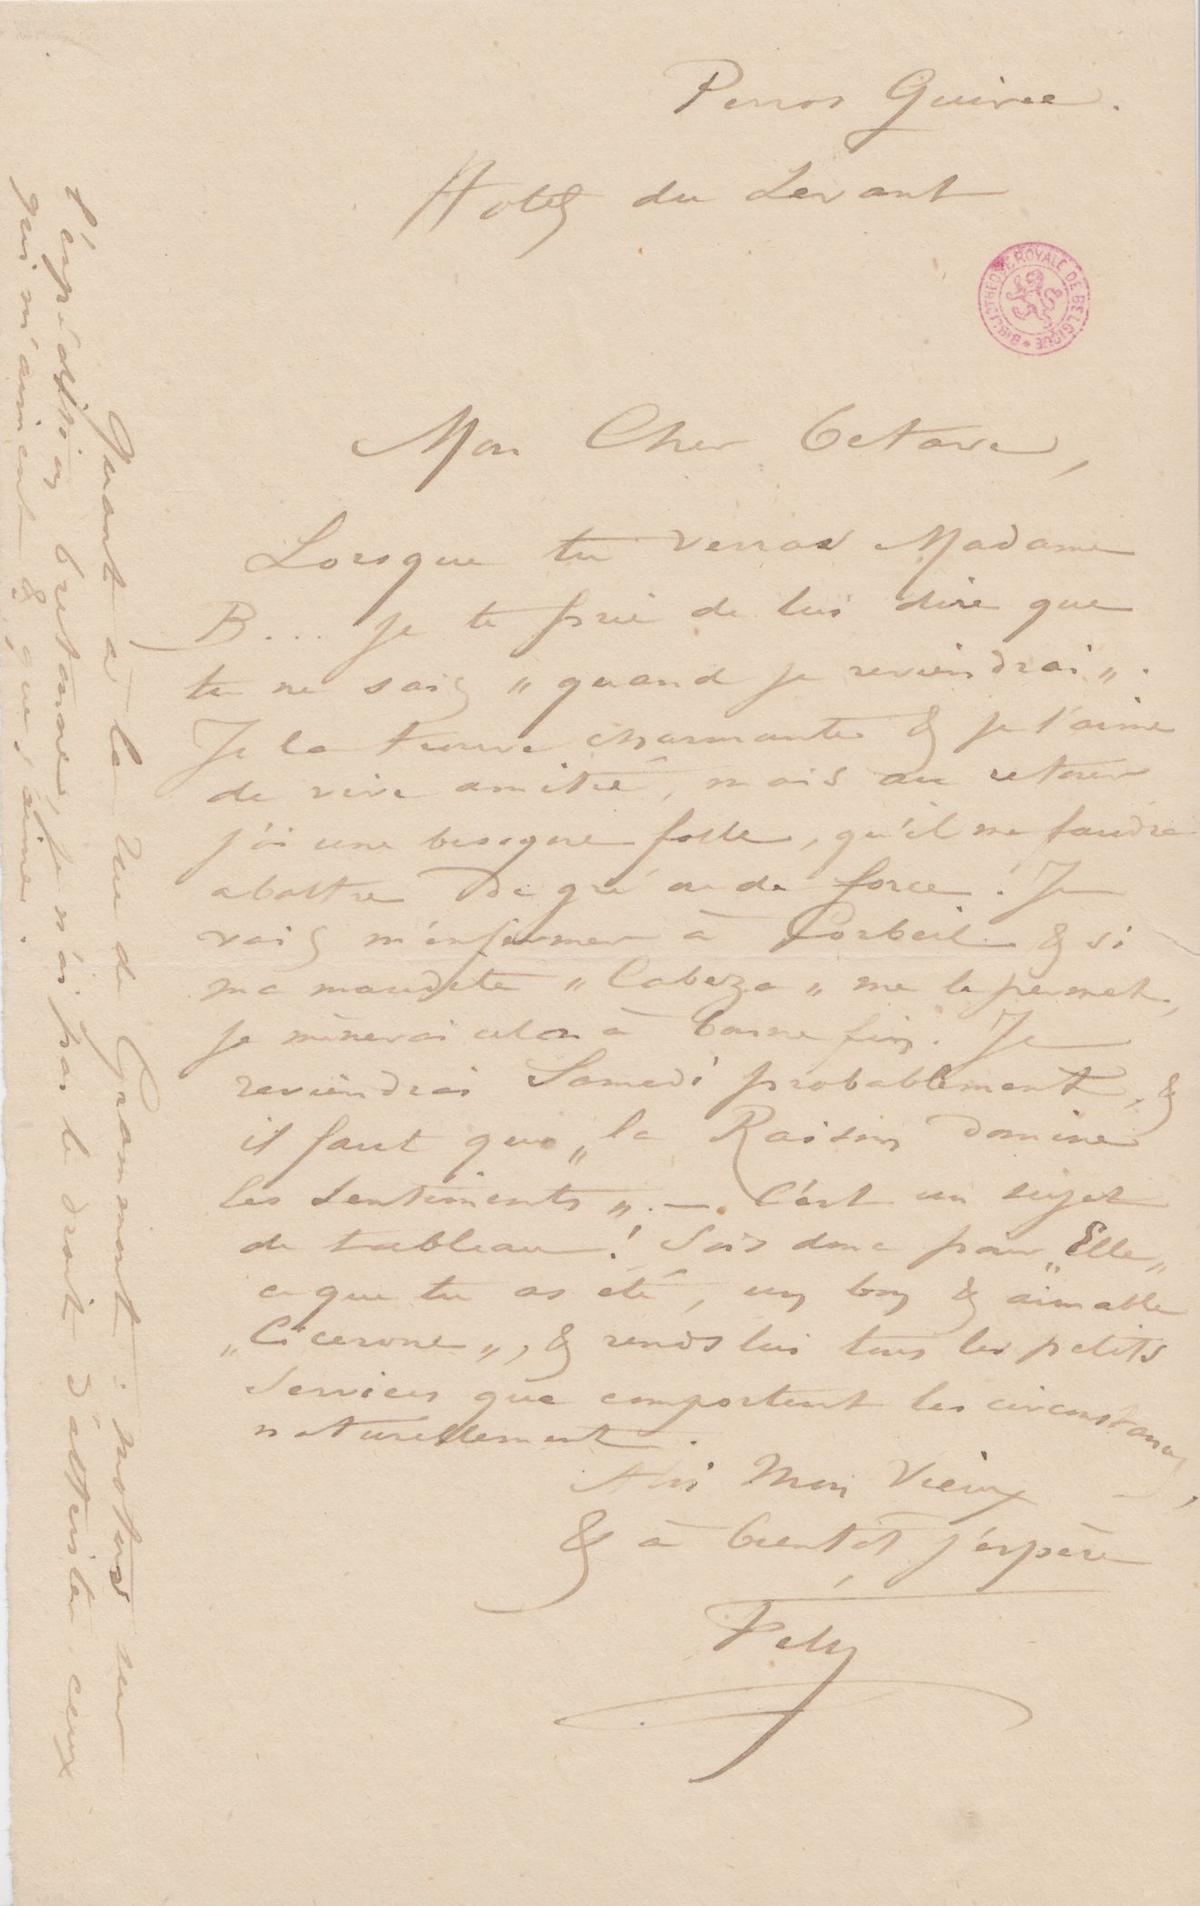 Perros Guirec.
Hotel du Levant
BIBLIOTHEQUE ROYALE DE BELGIQUE *
Mon Cher Octave,
Lorsque tu verras Madame
B... je te prie de lui dire que
tu ne sais „quand je reviendrai„.
Je la trouve charmante & je l'aime
de vive amitié, mais au retour
j'ai une besogne folle, qu'il me faudra
abattre de gré ou de force! Je
vais m'enfermer à Corbeil & si
ma maudite „Cabeza„ me le permet,
je mènerai cela à bonne fin. Je
reviendrai Samedi probablement, &
il faut que „la Raison domine
les sentiments„. — C'est un sujet
de tableau! Sois donc pour „Elle„
ce que tu as été, un bon & aimable
„Cicerone„, & rends lui tous les petits
services que comportent les circonstances,
naturellement.
Mon Vieux
& à bientôt j'espère
Fély
Quant à la rue de Grammont: motus sur
l'expédition bretonne, je n'ai pas le droit d'attrister ceux
qui m'aiment & que j'aime.